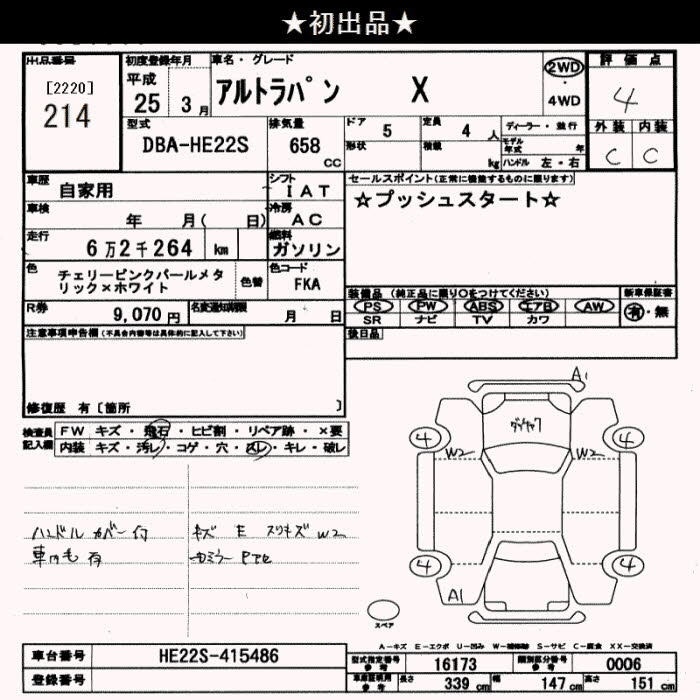 ★初出品★
出品番号
[2220]
214
初度登録年月
平成
25 3月
車名・グレード
アルトラパン X
2WD
・
4WD
評価点
4
外装 内装
C C
型式
DBA-HE22S
排気量
658
CC
ドア 5
形状
定員 4 人
積載 kg
ディーラー・並行
モデル年式 年
ハンドル 左・右
車歴 自家用
シフト IAT
車検 年 月( 日)
冷房 AC
走行 6万2千264 km
燃料 ガソリン
色 チェリーピンクパールメタ
リック×ホワイト
色替
色コード FKA
R券 9,070円
名変通知期限 月 日
セールスポイント(正常に機能するものに限ります)
☆プッシュスタート☆
装備品(純正品に限り○をつけてください)
新車保証書
PS PW ABS エアB AW
有・無
SR ナビ TV カワ
後日品
注意事項申告欄(不具合内容等は具体的に記入して下さい)
修復歴 有〔箇所 〕
検査員
記入欄
FW キズ・飛石・ヒビ割・リペア跡・×要
内装 キズ・汚レ・コゲ・穴・スレ・キレ・破レ
ハンドルカバー付
車内も有
キズ E スリキズ W2
A1
4
4
W2
W2
4
4
A1
スペア
A-キズ E-エクボ U-凹み W-補修跡 S-サビ C-腐食 XX-交換済
車台番号 HE22S-415486
登録番号
型式指定番号
参考
16173
類別区分番号
参考
0006
車庫証明用
参考
長さ 339cm 幅 147cm 高さ 151cm